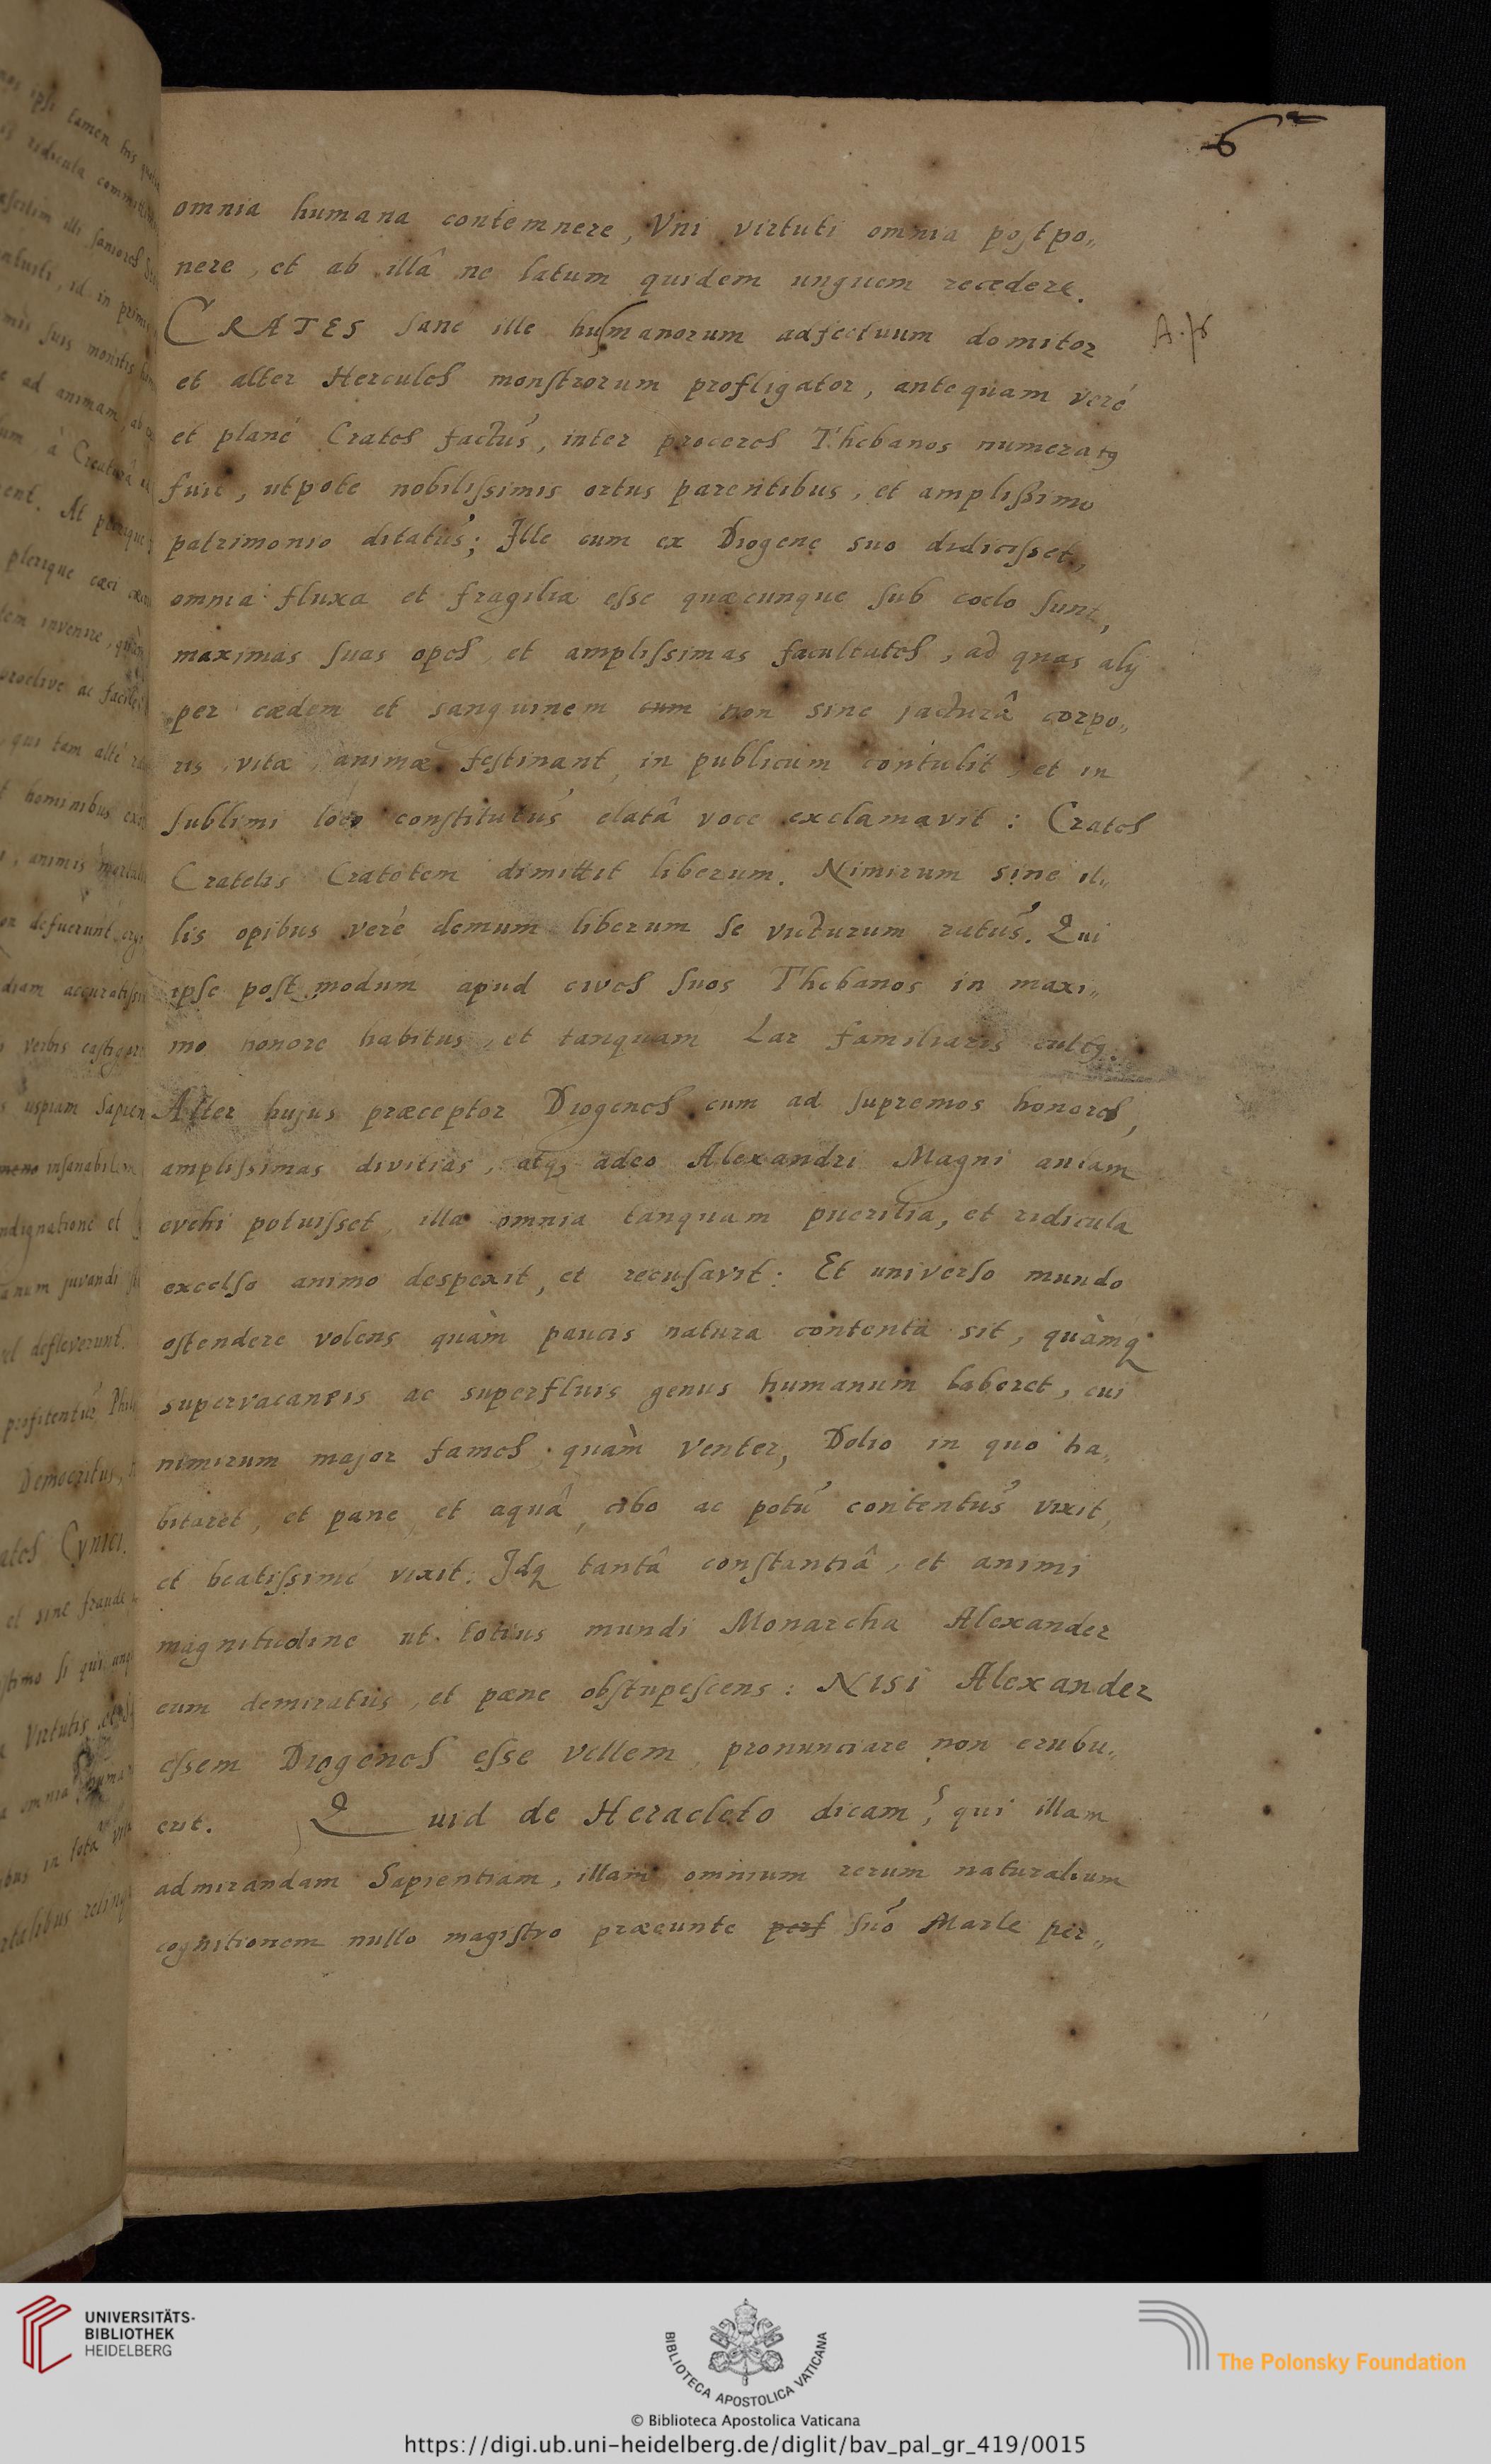 6
omnia humana contemnere, Uni virtuti omnia postpo„
nere, et ab illâ ne latum quidem unguem recedere.
CRATES sane ille humanorum adfectuum domitor
A. ps
et alter Hercules monstrorum profligator, antequam veré
et plané Crates factus, inter proceres Thebanos numeratꝯ
fuit, utpote nobilissimis ortus parentibus, et amplissimo
patrimonio ditatus; Ille cum ex Diogene suo didicisset,
omnia fluxa et fragilia esse quæcunque sub coelo sunt,
maximas suas opes, et amplissimas facultates, ad quas alij
per cædem et sanguinem cum non sine jacturâ corpo„
ris, vitæ, animæ festinant, in publicum contulit, et in
sublimi loco constitutus elatâ voce exclamavit: Crates
Cratetis Cratetem dimittit liberum. Nimirum sine il„
lis opibus veré demum liberum se victurum ratus. Qui
ipse postmodum apud cives suos Thebanos in maxi„
mo honore habitus, et tanquam Lar familiaris cultꝯ.
Alter hujus præceptor Diogenes cum ad supremos honores,
amplissimas divitias, atqꝫ adeo Alexandri Magni aulam
evehi potuisset, illa omnia tanquam puerilia, et ridicula
excelso animo despexit, et recusavit: Et universo mundo
ostendere volens quàm paucis natura contenta sit, quàmq́
supervacaneis ac superfluis genus humanum laboret, cui
nimirum major fames quàm venter, Dolio in quo ha„
bitaret, et pane, et aquâ, cibo ac potu contentus vixit,
et beatissimé vixit. Idq tantâ constantiâ, et animi
magnitudine ut totius mundi Monarcha Alexander
eum demiratus, et pæne obstupescens: NISI Alexander
essem Diogenes esse vellem, pronunciare non erubu„
erit. Quid de Heracleto dicam, qui illam
admirandam Sapientiam, illam omnium rerum naturalium
cognitionem nullo magistro præeunte perf suo Marte per„
UNIVERSITÄTS-
BIBLIOTHEK
HEIDELBERG
BIBLIOTECA APOSTOLICA VATICANA
The Polonsky Foundation
© Biblioteca Apostolica Vaticana
https://digi.ub.uni-heidelberg.de/diglit/bav_pal_gr_419/0015